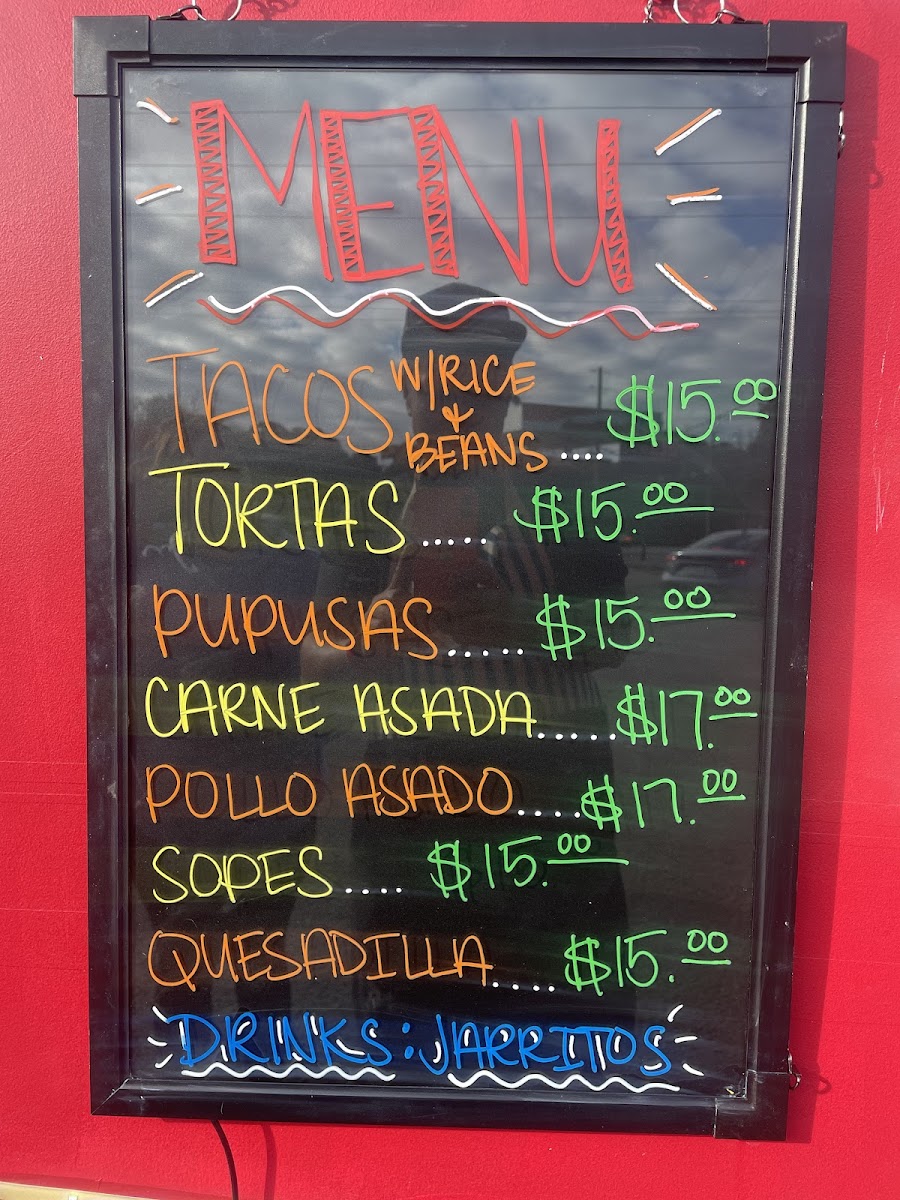 MENU
TACOS W/RICE & BEANS .... $15.00
TORTAS ..... $15.00
PUPUSAS ..... $15.00
CARNE ASADA ..... $17.00
POLLO ASADO .... $17.00
SOPES .... $15.00
QUESADILLA .... $15.00
DRINKS: JARRITOS